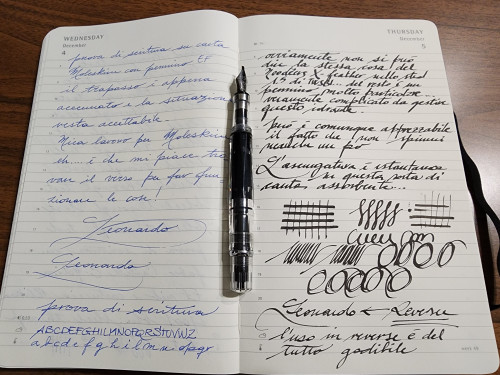 WEDNESDAY
December
4
prova di scrittura su carta
Moleskin con pennino EF
il trapasso è appena
accennato e la situazione
resta accettabile
lavoro per Moleskin
eh.... è che mi piace tro
vare il verso per far fun
zionare le cose!
Leonardo
Leonardo
prova di scrittura
ABCDEFGHILMNOPQRSTUVWZ
abcdefghilmnopqr
THURSDAY
December
5
ovviamente non si può
dire la stessa cosa del
feather nello
1.5 di ... del resto è un
pennino molto particolare...
veramente complicato da gestire
questo idrante.
può è comunque apprezzabile
il fatto che non spiumi
neanche un po'
L'asciugatura è istantanea
su questa sorta di
carta assorbente...
Leonardo & Reverse
l'uso in reverse è del
tutto godibile